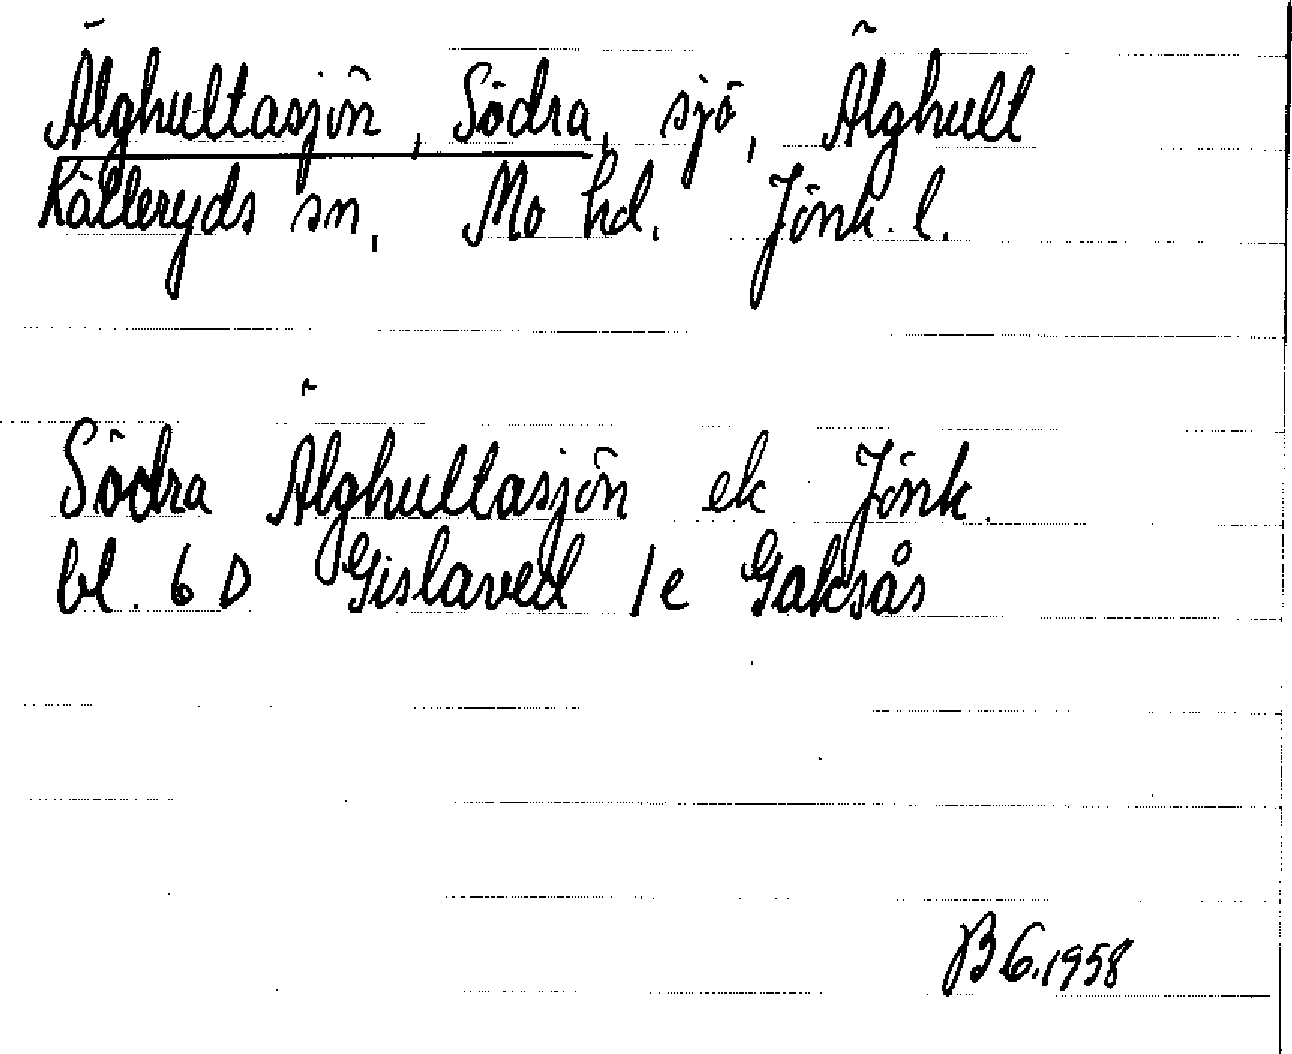 Älghultasjön, Södra, sjö, Älghult
Källeryds sn, Mo hd. Jönk. l.
Södra Älghultasjön ek Jönk.
bl. 6 D Gislaved 1e Galtsås
B G. 1958